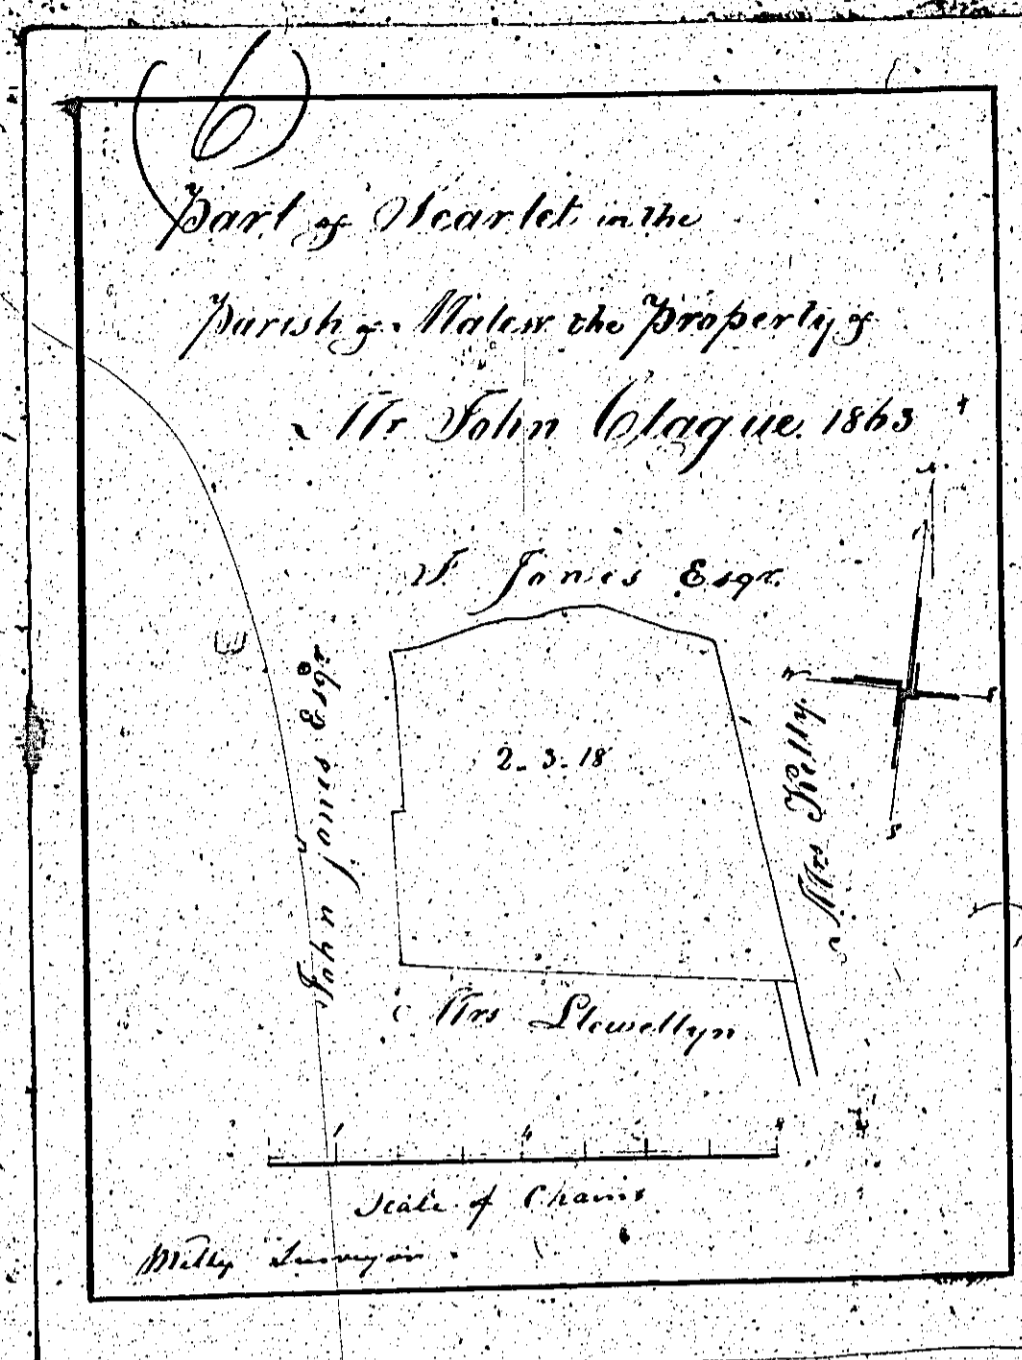 (6)
Part of Scarlet in the
Parish of Malew the Property of
Mr John Clague. 1863
F Jones Esqr.
John Jones Esqr
2-3-18
Mrs Kelly
N
W
E
S
Mrs Llewellyn
1 4 8
Scale of Chains
Surveyor